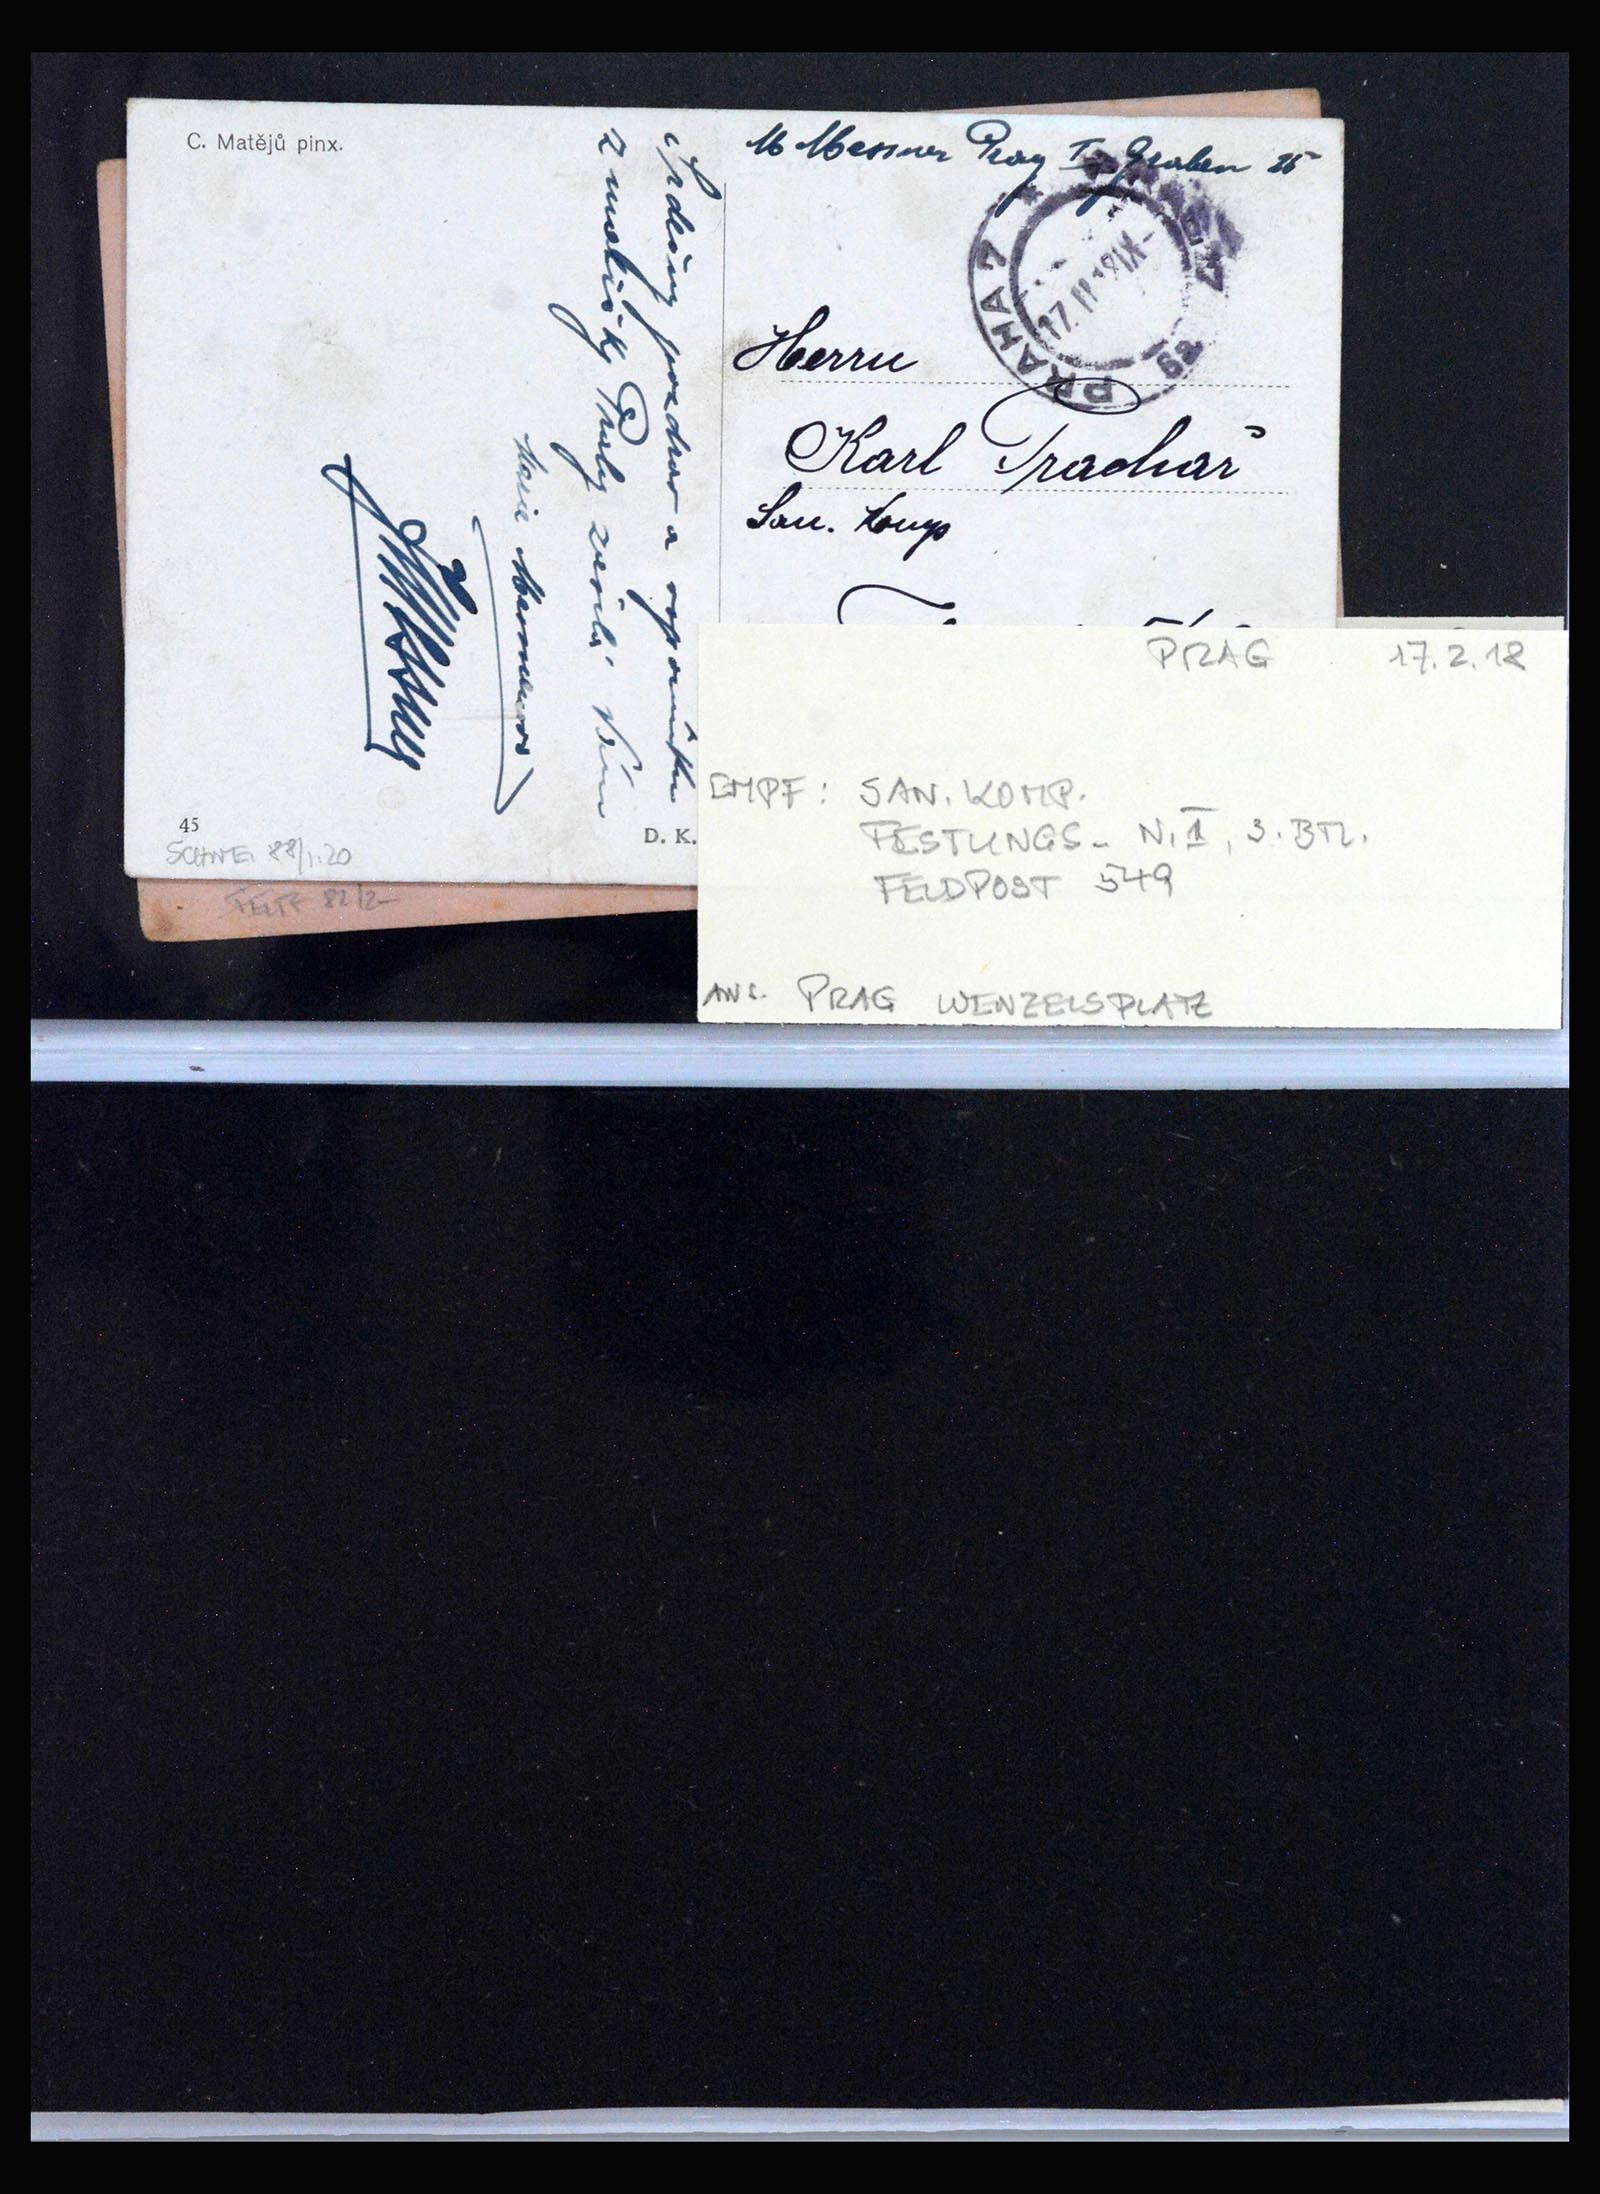 C. Matějů pinx.
M Messner Prag I. Graben 25
PRAHA 7
17.II.18 IX-
6a
Herrn
Karl Prachař
San. Komp
Srdečný pozdrav a vzpomínku
z matičky Prahy zasílá Vám
Marie
45
D. K.
88/1.20
82/2-
PRAG 17.2.18
EMPF: SAN. KOMP.
FESTUNGS- N.I, 3. BTL.
FELDPOST 549
ANS. PRAG WENZELSPLATZ